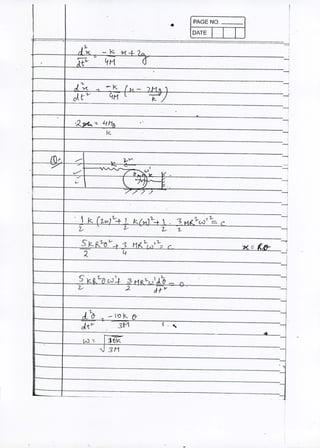 PAGE NO.
DATE
d²x/dt² = -k/4M x + 2g
d²x/dt² = -k/4M (x - 2Mg/k)
4Mg/k
Q:-
k
1/2 k(2x)² + 1/2 k(x)² + 1/2 · 3/2 MR²ω'² = c
5kR²θ²/2 + 3/4 MR²ω'² = c
x = Rθ
5/2 kR²θω' + 3/2 MR²ω' d²θ/dt² = 0
d²θ/dt² = -10k/3M θ
ω = √10k/3M